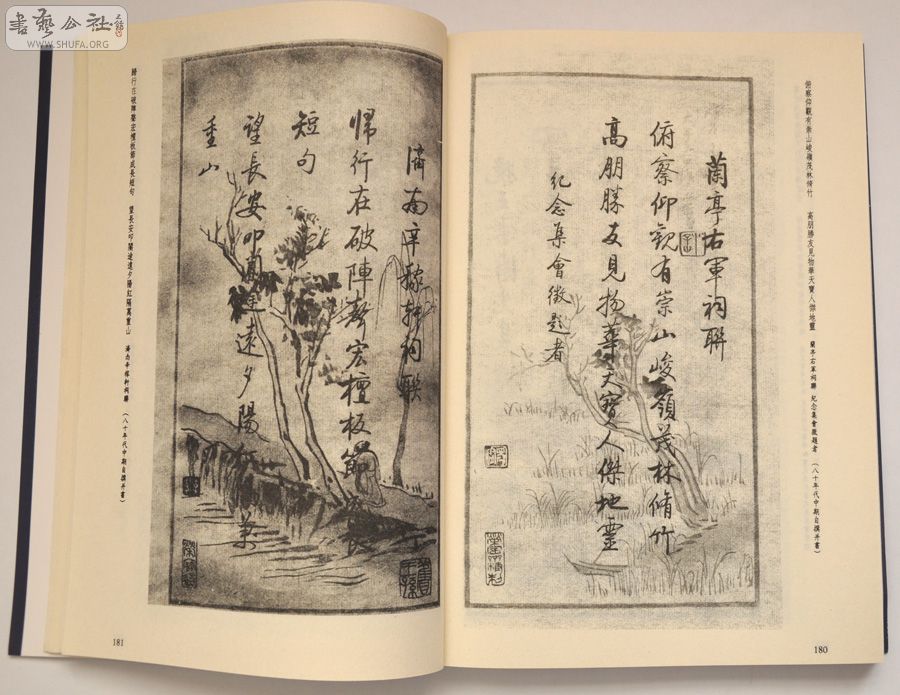 書藝公社
WWW.SHUFA.ORG
俯察仰觀有崇山峻嶺茂林脩竹 高朋勝友見物華天寶人傑地靈 蘭亭右軍祠聯 紀念集會徵題者 (八十年代中期自撰并書)
蘭亭右軍祠聯
俯察仰觀有崇山峻嶺茂林脩竹
高朋勝友見物華天寶人傑地靈
紀念集會徵題者
180
濟南辛稼軒祠聯
歸行在破陣聲宏檀板節成長
短句
望長安叩閽途遠夕陽紅隔萬
重山
歸行在破陣聲宏檀板節成長短句 望長安叩閽途遠夕陽紅隔萬重山 濟南辛稼軒祠聯 (八十年代中期自撰并書)
181